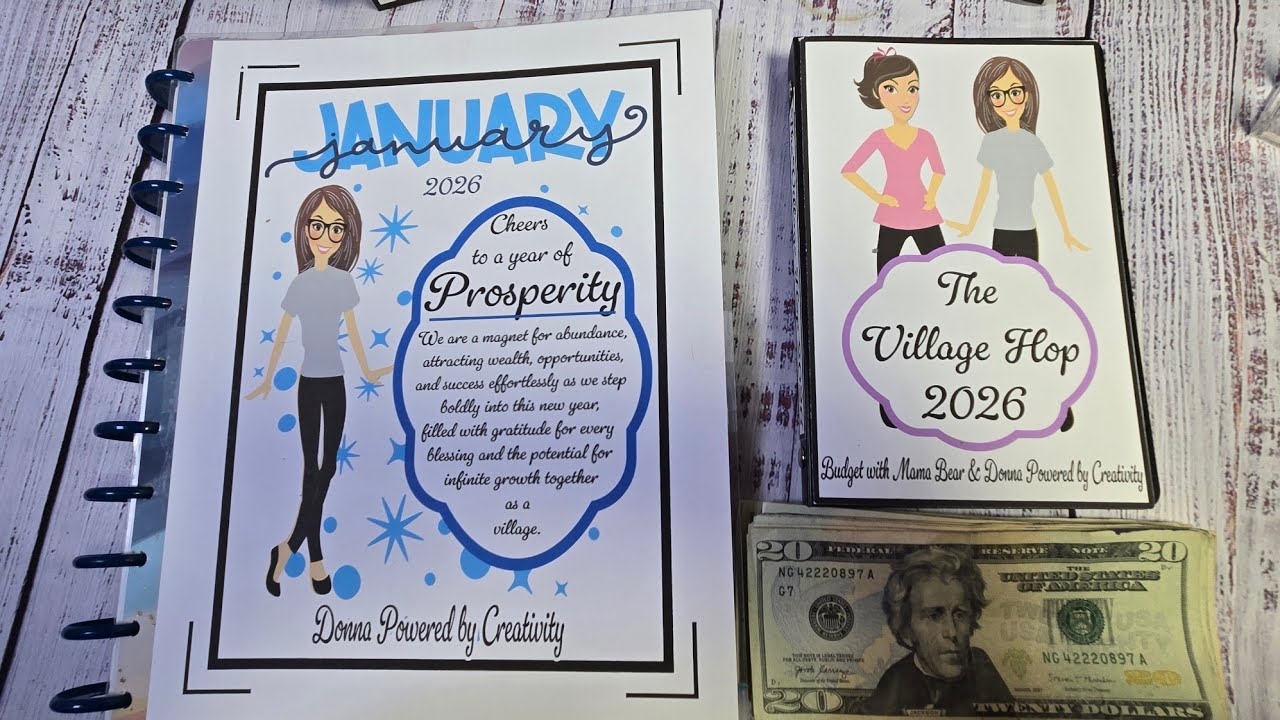 JANUARY
january
2026
Cheers
to a year of
Prosperity
We are a magnet for abundance,
attracting wealth, opportunities,
and success effortlessly as we step
boldly into this new year,
filled with gratitude for every
blessing and the potential for
infinite growth together
as a
village.
Donna Powered by Creativity
The
Village Hop
2026
Budget with Mama Bear & Donna Powered by Creativity
20 FEDERAL RESERVE NOTE 20
NG 42220897 A
G7
THE
UNITED STATES
OF AMERICA
TWENTY USA
NG 42220897 A
20 TWENTY DOLLARS